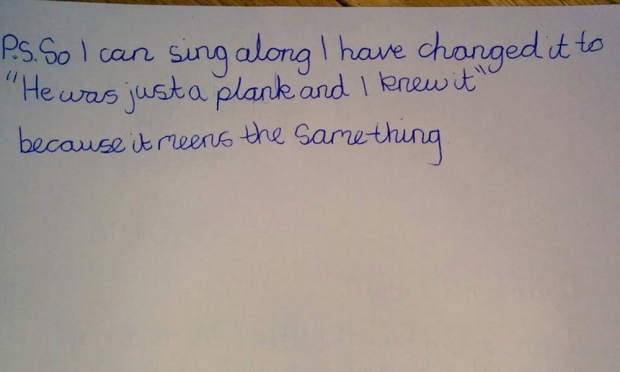 P.S. So I can sing along I have changed it to
"He was just a plank and I knew it"
because it meens the same thing